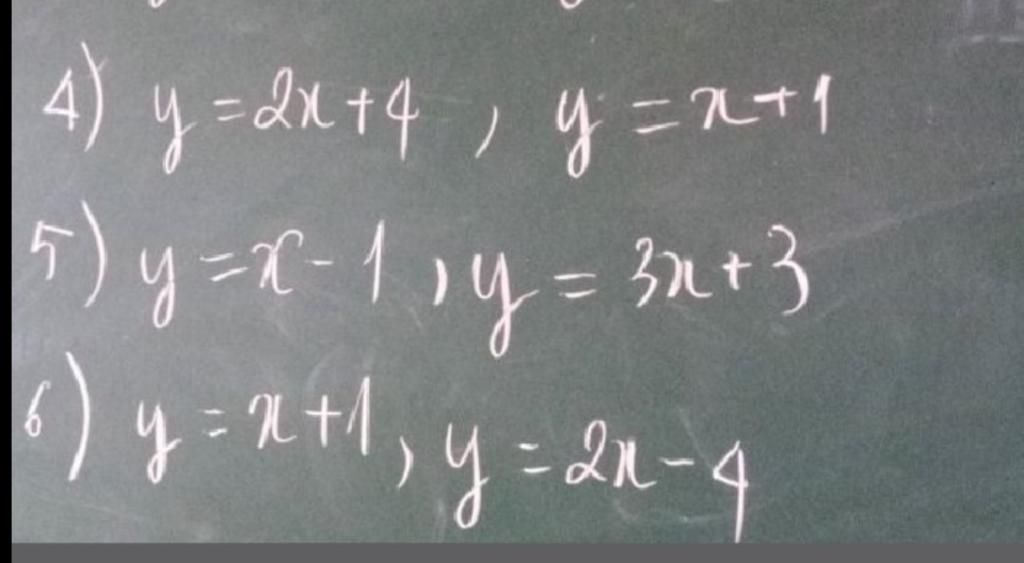 4) y = 2x + 4 , y = x + 1
5) y = x - 1 , y = 3x + 3
6) y = x + 1 , y = 2x - 4